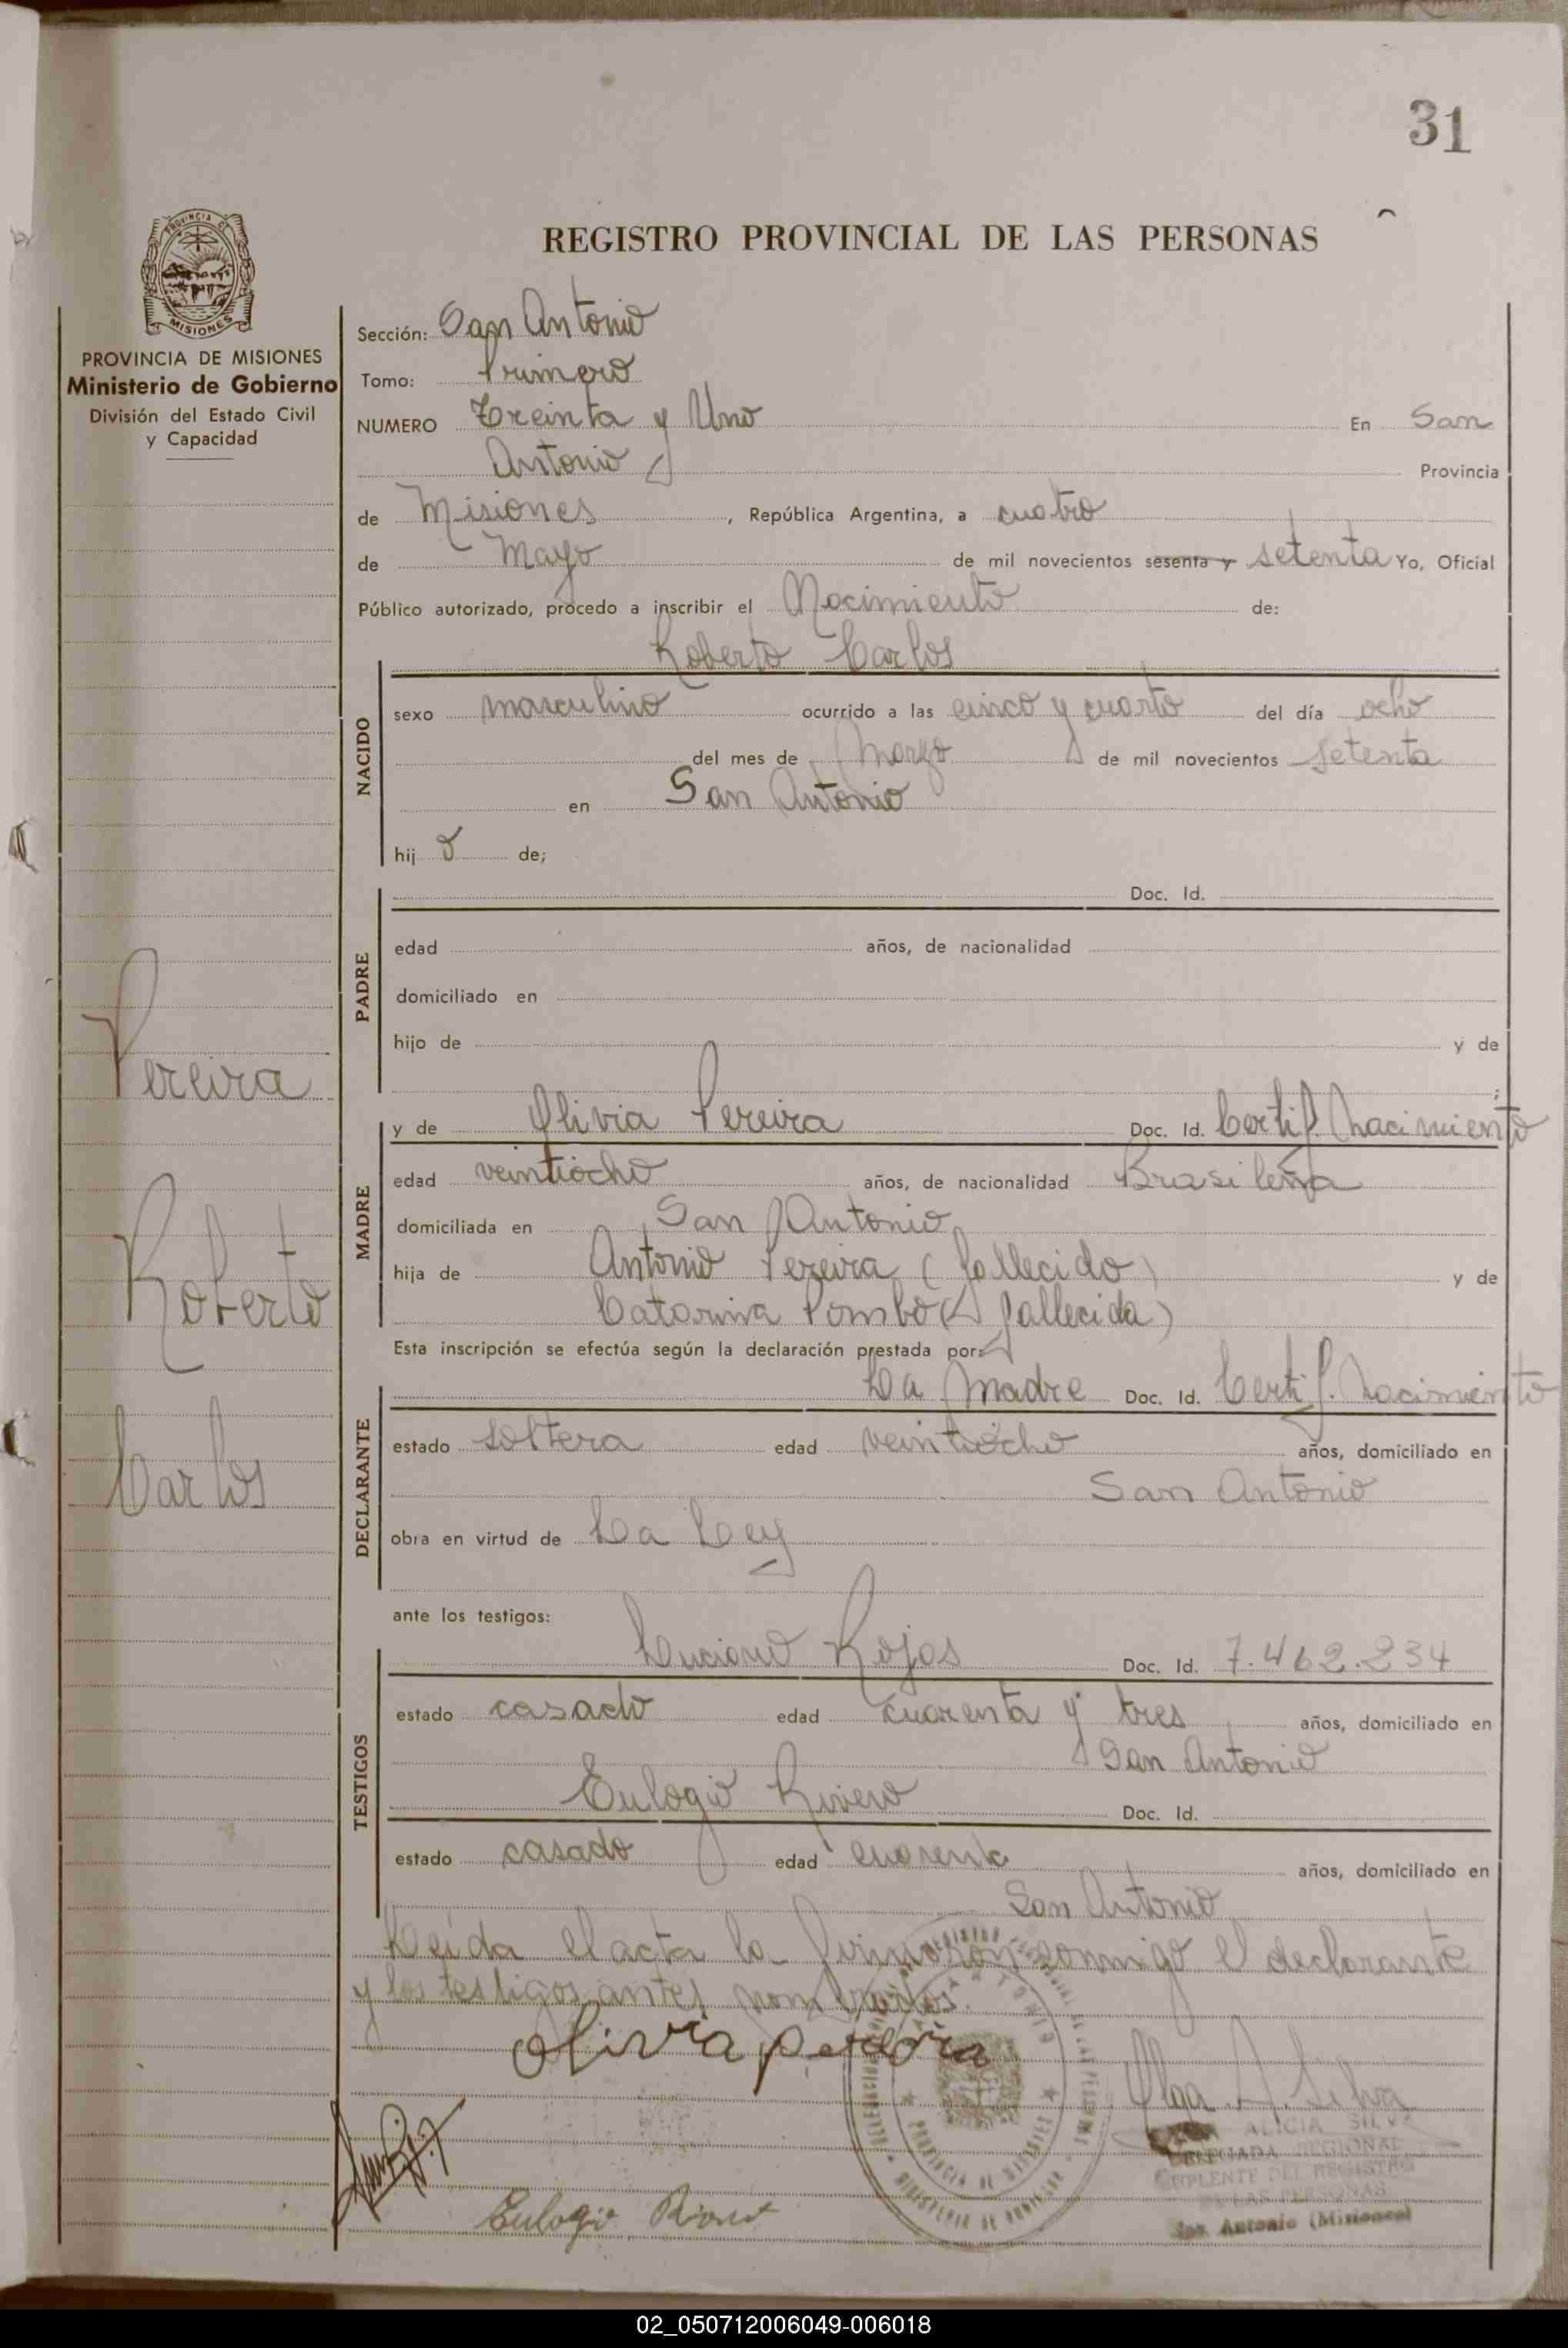 31
REGISTRO PROVINCIAL DE LAS PERSONAS
MISIONES
PROVINCIA DE MISIONES
Ministerio de Gobierno
División del Estado Civil
y Capacidad
Sección: San Antonio
Tomo: Primero
NUMERO Treinta y Uno En San
Antonio Provincia
de Misiones, República Argentina, a cuatro
de Mayo de mil novecientos sesenta y setenta Yo, Oficial
Público autorizado, procedo a inscribir el Nacimiento de:
Roberto Carlos
NACIDO
sexo masculino ocurrido a las cinco y cuarto del día ocho
del mes de Marzo de mil novecientos setenta
en San Antonio
hij o de;
PADRE
Doc. Id.
edad años, de nacionalidad
domiciliado en
hijo de y de
;
Pereira
Roberto
Carlos
MADRE
y de Olivia Pereira Doc. Id. Certif. Nacimiento
edad veintiocho años, de nacionalidad Brasileña
domiciliada en San Antonio
hija de Antonio Pereira (fallecido) y de
Catarina Pombo (fallecida)
Esta inscripción se efectúa según la declaración prestada por:
DECLARANTE
La Madre Doc. Id. Certif. Nacimiento
estado soltera edad veintiocho años, domiciliado en
San Antonio
obra en virtud de La Ley
ante los testigos:
TESTIGOS
Luciano Rojas Doc. Id. 7.462.234
estado casado edad cuarenta y tres años, domiciliado en
San Antonio
Eulogio Rivero Doc. Id.
estado casado edad cuarenta años, domiciliado en
San Antonio
Leída el acta la firmaron conmigo el declarante
y los testigos antes nombrados.
Olivia pereira
Olga A. Silva
ALICIA SILVA
DELEGADA REGIONAL
SUPLENTE DEL REGISTRO
DE LAS PERSONAS
San Antonio (Misiones)
PROVINCIA DE MISIONES
Eulogio Rivero
02_050712006049-006018